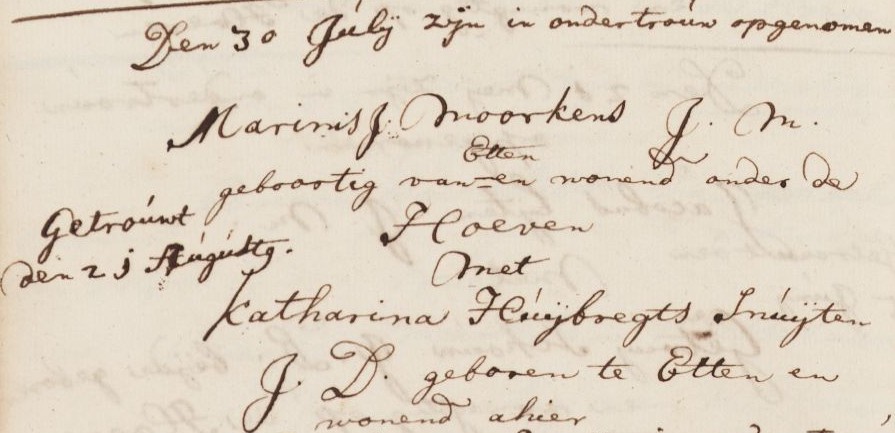 Den 30 Júlÿ zÿn in ondertroúw opgenomen
Marinis J. Moorkens J. M.
Etten
geboortig van=en wonend onder de
Hoeven
Getroúwt
den 21 Aúgústÿ.
Met
Katharina Húÿbregts Snúÿten
J. D. geboren te Etten en
wonend alhier